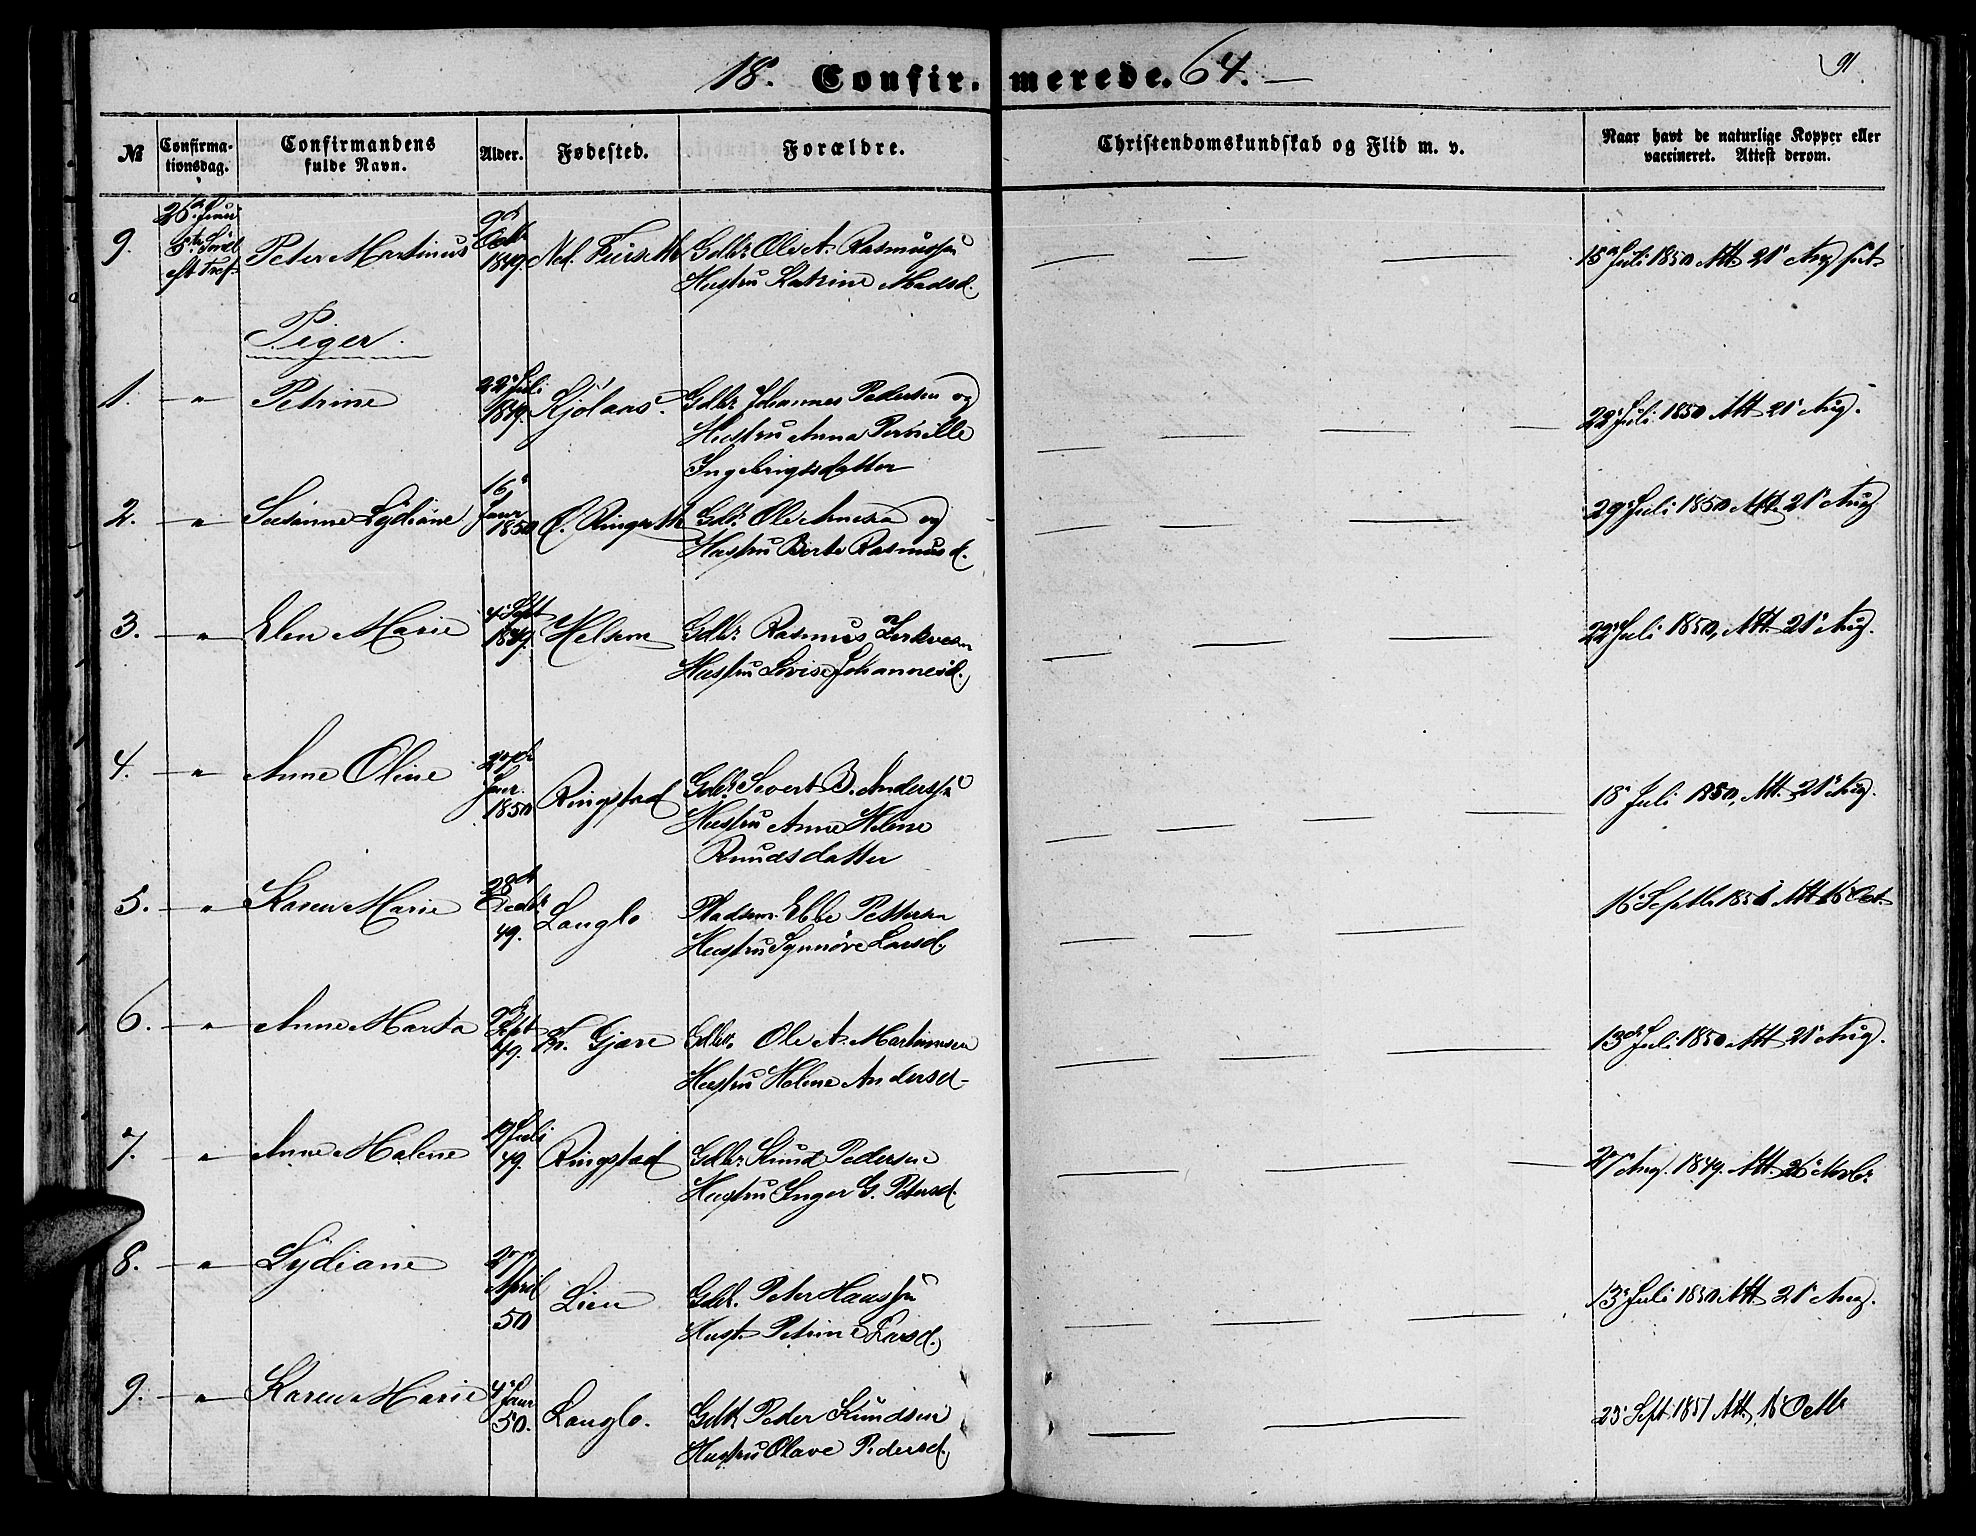 18. Confirmerede. 64. —
91
№ Confirmationsdag. Confirmandens fulde Navn. Alder. Fødested. Forældre. Christendomskundskab og Flid m. v. Naar havt de naturlige Kopper eller vaccineret. Attest derom.
9. Peter Martinus 1849. Ned. Gdbr Ole A. Rasmussen 15 Juli 1850 Att. 21 Aug
Hustru Katrine Madsd.
Piger.
1. — " — Petrine 22 Juli 1849. Kjølaas. Gdbr Johannes Pedersen og 22 Juli 1850 Att 21 Aug.
Hustru Anna Pernille
Ingebrigtsdatter
2. — " — Susanne Lydiane 16 Janr 1850 Gdbr Ole Arnesen og 29 Juli 1850 Att. 21 Aug
Hustru Berte Rasmusd.
3. — " — Elen Marie 4 Sept 1849. Helsem Gdbr. Rasmus 22 Juli 1850, Att. 21 Aug.
Hustru Lovise Johannesd.
4. — " — Anne Oline Janr. 1850 Ringstad Gdbr. Sivert B. Anderssen 18 Juli 1850, Att. 21 Aug.
Hustru Anne Helene
Knudsdatter
5. — " — Karen Marie 28 Decbr 49. Langlo Pladsm. Ebbe Pettersen 16 Septbr 1851 Att 15 Oct.
Hustru Synnøve Larsd.
6. — " — Anne Marta Sept 49. Gjære Gdbr. Ole A. Martinusen 13 Juli 1850 Att 21 Aug.
Hustru Helene Andersd.
7. " — Anne Malene 19 Juli 49. Ringstad Gdbr Knud Pedersen 27 Aug. 1849. Att. Novbr
Hustru Inger G. Petersd.
8. — " — Lydiane 27 April 50 Lien Gdbr. Peter Hanssen 13 Juli 1850 Att 21 Aug.
Hust. Petrine Larsd.
9. — " — Karen Marie 4 Janr 50. Langlo. Gdbr Peder Knudsen 23 Sept 1851 Att. 15 Octbr
Hustru Olave Pedersd.